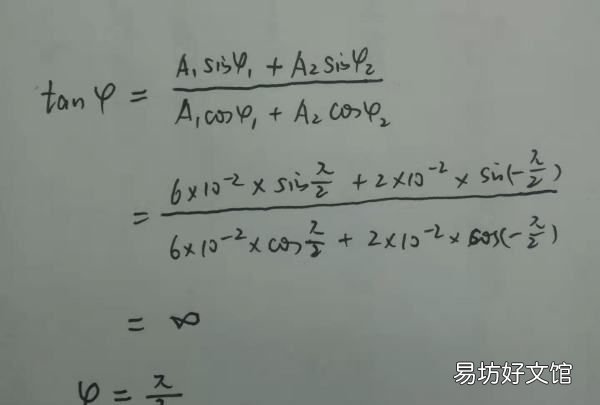 tan φ = (A₁ sin φ₁ + A₂ sin φ₂) / (A₁ cos φ₁ + A₂ cos φ₂)
= (6×10⁻² × sin π/2 + 2×10⁻² × sin(-π/2)) / (6×10⁻² × cos π/2 + 2×10⁻² × cos(-π/2))
= ∞
φ = π/2
易坊好文馆